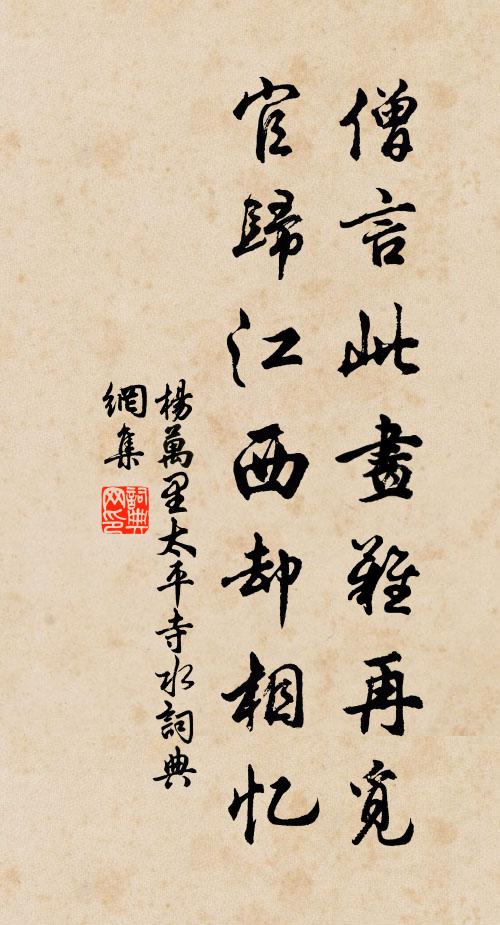 僧言此畫難再覓
官歸江西却相忆
楊萬里太平寺水詞典
網集
詞典
网印